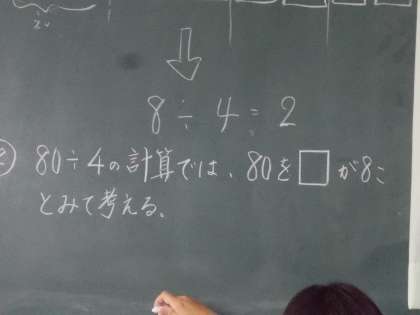 20
8÷4=2
80÷4の計算では、80を□が8こ
とみて考える。